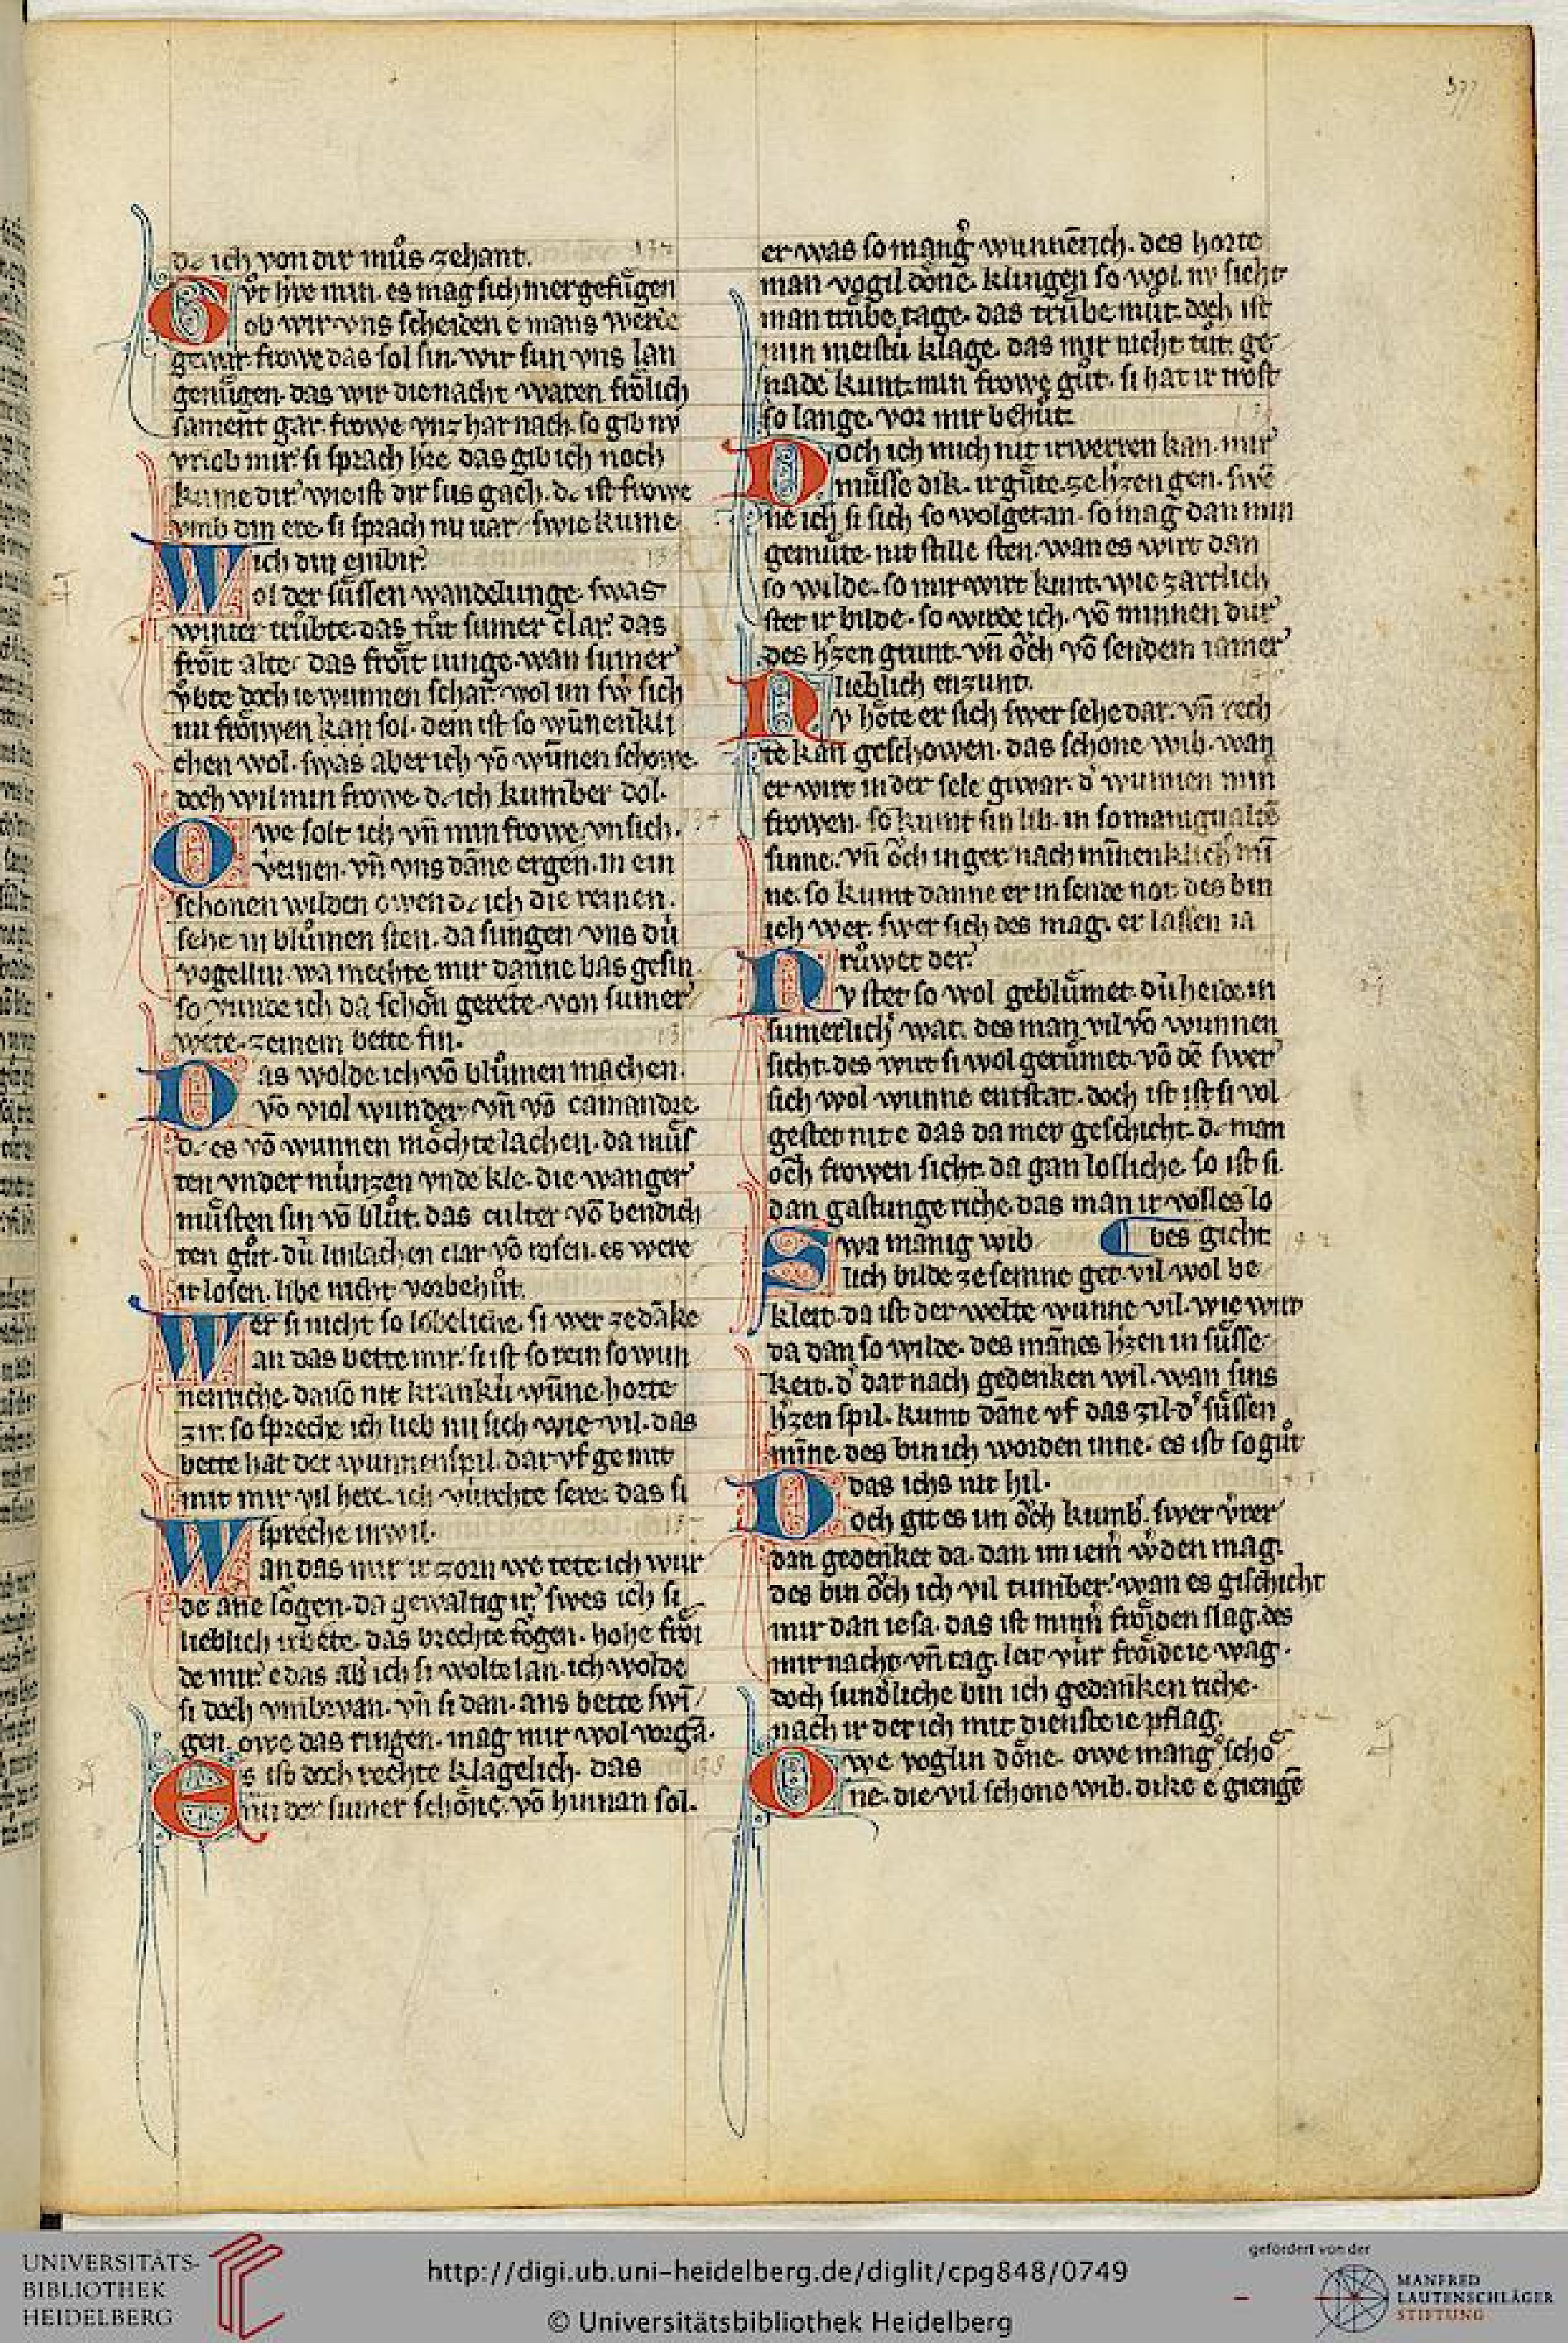 377
dc ich von dir můs zehant.
Gvt hre min. es mag sich mer gefůgen
ob wir vns scheiden e mans werde
gewar. frowe das sol sin. wir sun vns lan
genůgen. das wir die nacht waren frölich
sament gar. frowe vnz har nach. so gib nv
vrlob mir. si sprach hre das gib ich noch
kume dir. wie ist dir sus gach. dc ist frowe
vmb din ere. si sprach nu var. swie kume
ich din enbir.
Wol der sůssen wandelunge. swas
winter trůbte. das tůt sumer clar. das
fröit alte. das fröit iunge. wan sumer
vbte doch ie wunnen schar. wol im swˢ sich
nu fröiwen kan sol. dem ist so wūnenkli
chen wol. swas aber ich vō wūnen schowe.
doch wil min frowe. dc ich kumber dol.
Owe solt ich vn̄ min frowe. vnsich.
vˢeinen. vn̄ vns dāne ergen. in ein
schonen wilden owen dc ich die reinen.
sehe in blůmen sten. da sungen vns dü
vogellin. wa mechte mir danne bas gesin.
so vunde ich da schön gerete. von sumer
wete. zeinem bette fin.
Das wolde ich vō blůmen machen.
vō viol wunder. vn̄ vō camandre.
dc es vō wunnen möchte lachen. da můs
ten vnder münzen vnde kle. die wanger
můsten sin vō blůt. das culter vō bendich
ten gůt. dü linlachen clar vō rosen. es were
ir losen. libe nicht vorbehůt.
Wer si nicht so lobeliche. si wer ze dāke
an das bette mir. si ist so rein so wun
nenriche. da vō nit krankü wūne. horte
zir. so spreche ich lieb nu sich wie vil. das
bette hat der wunnenspil. dar vf ge mit
mit mir vil here. ich vürchte sere. das si
spreche in wil.
Wan das mir ir zorn we tete. ich wur
de ane lögen. da gewaltig ir. swes ich si
lieblich irbete. das brechte tögen. hohe fröi
de mir. e das abˢ ich si wolte lan. ich wolde
si doch vmbevan. vn̄ si dan. ans bette swī
gen. owe das ringen. mag mir wol vorgā.
Es ist doch rechte klagelich. das
nu der sumer schöne. vō hinnan sol.
er was so mangˢ wunnēich. des horte
man vogil döne. klingen so wol. nv sicht
man trůbe tage. das trůbe mut. doch ist
min meistü klage. das mir nicht tůt. ge
nade kunt. min frowe gůt. si hat ir trost
so lange. vor mir behůt.
Doch ich mich nit irwerren kan. mir
můsse dik. ir gůte. ze hˢzen gen. swē
ne ich si sich so wolgetan. so mag dan min
gemůte. nit stille sten. wan es wirt dan
so wilde. so mir wirt kunt. wie zartlich
stet ir bilde. so wirde ich. vō minnen dur
des hˢzen grunt. vn̄ öch vō sendem iamer
lieblich enzunt.
Nv höte er sich swer sehe dar. vn̄ rech
te kan geschowen. das schone wib. wan
er wirt in der sele giwar. dˢ wunnen min
frowen. so kumt sin lib. in so manigualtē
sinne. vn̄ öch in ger. nach minenklich mī
ne. so kumt danne er in sende not. des bin
ich wer. swer sich des mag. er lassen ia
růwet der.
Nv stet so wol geblůmet. dü heide in
sumerlichˢ wat. des man vil vō wunnen
sicht. des wirt si wol gerůmet. vō dē swer
sich wol wunne entstat. doch ist ist si vol
gestet nit e das da mer geschicht. dc man
öch frowen sicht. da gan losliche. so ist si.
dan gastunge riche. das man ir volles lo
bes gicht
Swa manig wib
lich bilde ze semne get. vil wol be
kleit. da ist der welte wunne vil. wie wirt
da dan so wilde. des mānes hˢzen in sůsse
keit. dˢ dar nach gedenken wil. wan sins
hˢzen spil. kumt dāne vf das zil. dˢ sůssen
mīne. des bin ich worden inne. es ist so gůt
das ichs nit hil.
Doch git es im öch kumbˢ. swer vˢrer
dan gedenket da. dan im iemˢ wˢden mag.
des bin öch ich vil tumber. wan es gischicht
mir dan iesa. das ist minˢ fröiden slag. des
mir nacht vn̄ tag. leit vür fröide ie wag.
doch sundˢliche bin ich gedanken riche.
nach ir der ich mit dienste ie pflag.
Owe voglin döne. owe mangˢ schö
ne. die vil schone wib. dike e giengē
UNIVERSITÄTS-
BIBLIOTHEK
HEIDELBERG
http://digi.ub.uni-heidelberg.de/diglit/cpg848/0749
© Universitätsbibliothek Heidelberg
gefördert von der
MANFRED
LAUTENSCHLÄGER
STIFTUNG